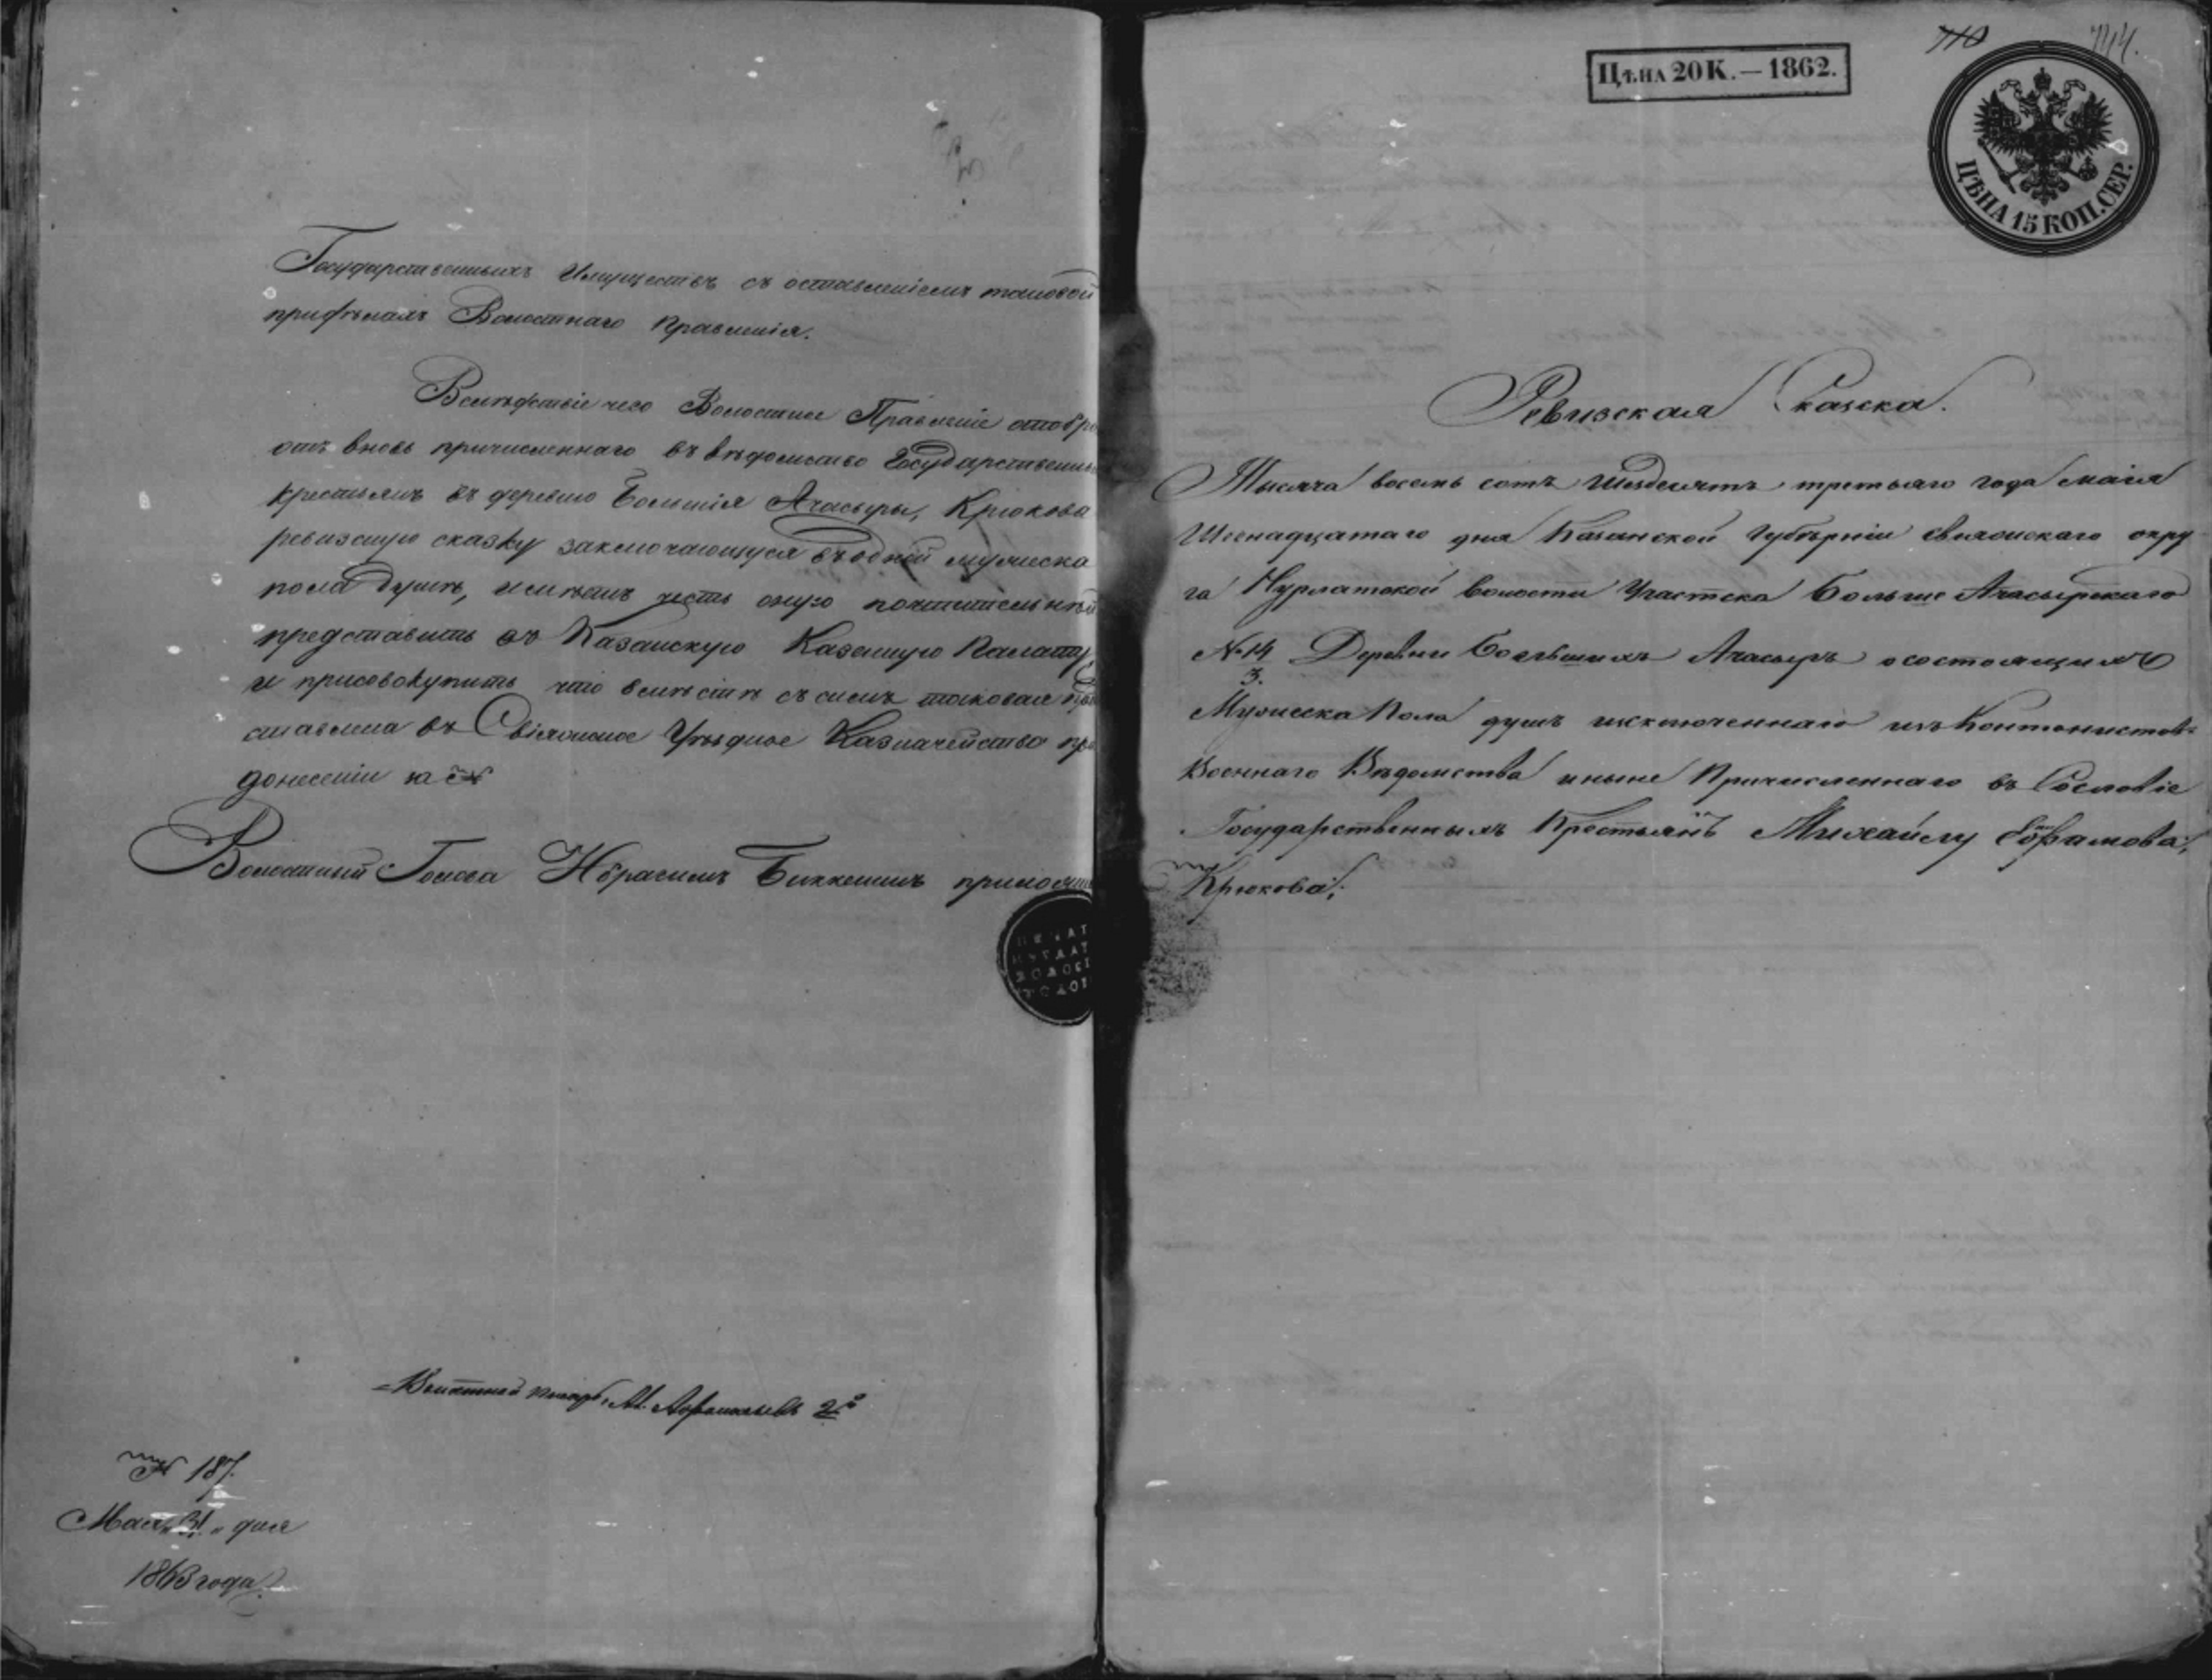 Государственныхъ Имуществъ съ оставленіемъ таковой
при дѣлахъ Волостнаго Правленія.
Вслѣдствіе чего Волостное Правленіе отобра
отъ вновь причисленнаго въ вѣдомство Государственны
крестьянъ въ деревню Большія Ачасыры, Крюкова
ревизскую сказку заключающуюся въ одной мужеска
пола душѣ, имѣетъ честь оную почтительнѣй
представить въ Казанскую Казенную Палату,
и присовокупить что вмѣстѣ съ симъ таковая пред
ставлена въ Свіяжское Уѣздное Казначейство при
донесеніи за №
Волостный Голова Ибрагимъ Биккининъ приложи
ПЕЧАТ
НУРЛАТ
ВОЛОСТ
ГОЛОВ
Волостной писарь М. 2й
№ 187.
Мая „31„ дня
1863 года.
110 744.
Цѣна 20 К. — 1862.
ЦѢНА 15 КОП. СЕР.
Ревизская Сказка.
Тысяча восемь сотъ Шездесятъ третьяго года маія
Шеснадцатаго дня Казанской Губѣрніи Свіяжскаго окру
га Нурлатской волости Участка Больше Ачасырскаго
№ 14 Деревни Большихъ Ачасыръ о состоящихъ
3.
Мужеска Пола душъ исключеннаго изъ Контонистов=
Военнаго Вѣдомства и ныне Причисленнаго въ Сословіе
Государственныхъ Крестьянъ Михайлу Ефрамова,
Крюкова;